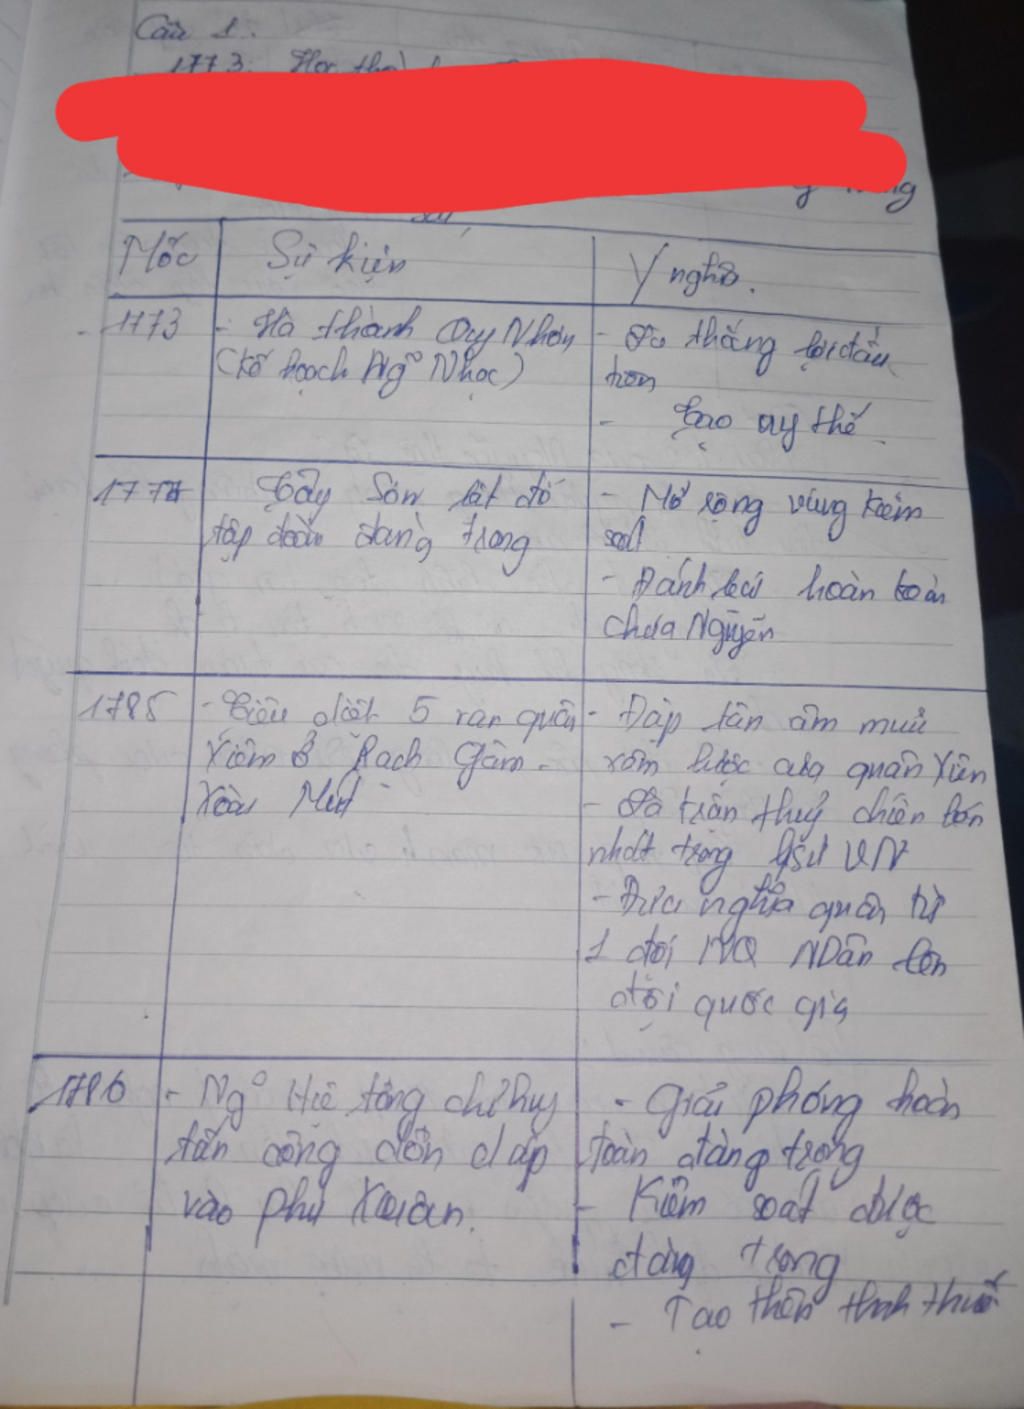 Câu 1.
1773:
Mốc Sự kiện Ý nghĩa.
1773 - Hạ thành Quy Nhơn - Là thắng lợi đầu
(kế hoạch Ng~ Nhạc) tiên
- Tạo uy thế.
1777 Tây Sơn lật đổ - Mở rộng vùng kiểm
tập đoàn đàng trong soát
- Đánh bại hoàn toàn
chúa Nguyễn
1785 - Tiêu diệt 5 vạn quân - Đập tan âm mưu
Xiêm ở Rạch Gầm - xâm lược của quân Xiêm
Xoài Mút - Là trận thuỷ chiến lớn
nhất trong lịsử VN
- Đưa nghĩa quân từ
1 đội NQ NDân lên
đội quốc gia
1786 - Ng~ Huệ tổng chỉ huy - Giải phóng hoàn
tấn công dồn dập toàn đàng trong
vào phú Xuân. - Kiểm soát được
đàng trong
- Tạo thên thanh thuế